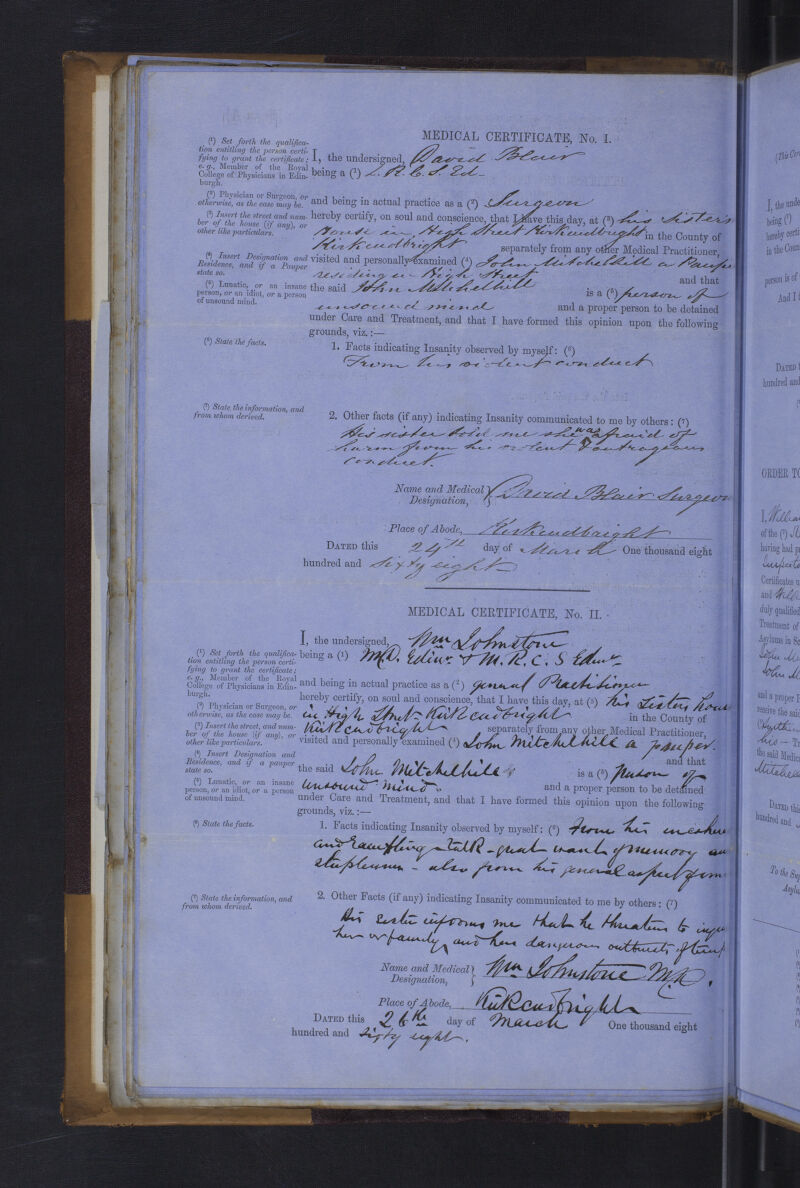 MEDICAL CERTIFICATE, No. I.
(¹) Set forth the qualifica-
tion entitling the person certi-
fying to grant the certificate;
e.g., Member of the Royal
College of Physicians in Edin-
burgh.
I, the undersigned, David Blair
being a (¹) L. R. C. S. Ed.
(²) Physician or Surgeon, or
otherwise, as the case may be.
and being in actual practice as a (²) Surgeon
(³) Insert the street and num-
ber of the house (if any), or
other like particulars.
hereby certify, on soul and conscience, that I have this day, at (³) his Sisters
House in High Street Kirkcudbright in the County of
Kirkcudbright separately from any other Medical Practitioner,
(⁴) Insert Designation and
Residence, and if a Pauper
state so.
visited and personally examined (⁴) John Mitchelhill a Paupe
residing in High Street and that
(⁵) Lunatic, or an insane
person, or an idiot, or a person
of unsound mind.
the said John Mitchelhill is a (⁵) person of
unsound mind and a proper person to be detained
under Care and Treatment, and that I have formed this opinion upon the following
grounds, viz.:—
(⁶) State the facts.
1. Facts indicating Insanity observed by myself: (⁶)
From his violent conduct
(⁷) State the information, and
from whom derived.
2. Other facts (if any) indicating Insanity communicated to me by others: (⁷)
His sister told me she was afraid of
harm from his violent & outrageous
conduct.
Name and Medical Designation, David Blair Surgeon
Place of Abode, Kirkcudbright
DATED this 24th day of March One thousand eight
hundred and Sixty eight
MEDICAL CERTIFICATE, No. II.
I, the undersigned, Wm Johnstone
(¹) Set forth the qualifica-
tion entitling the person certi-
fying to grant the certificate;
e.g., Member of the Royal
College of Physicians in Edin-
burgh.
being a (¹) M.D. Edinr & M. R. C. S Edinr
and being in actual practice as a (²) general Practitioner
(²) Physician or Surgeon, or
otherwise, as the case may be.
hereby certify, on soul and conscience, that I have this day, at (³) his Sisters house
in High Street Kirkcudbright in the County of
(³) Insert the street, and num-
ber of the house (if any), or
other like particulars.
Kirkcudbright separately from any other Medical Practitioner,
visited and personally examined (⁴) John Mitchelhill a pauper.
(⁴) Insert Designation and
Residence, and if a pauper
state so.
and that
the said John Mitchelhill is a (⁵) person of
(⁵) Lunatic, or an insane
person, or an idiot, or a person
of unsound mind.
unsound mind and a proper person to be detained
under Care and Treatment, and that I have formed this opinion upon the following
grounds, viz.:—
(⁶) State the facts.
1. Facts indicating Insanity observed by myself: (⁶) From his incohere
and rambling talk - great want of memory an
also from his general aspect
(⁷) State the information, and
from whom derived.
2. Other Facts (if any) indicating Insanity communicated to me by others: (⁷)
His sister informs me that he threatens to inju
her or family, and has dangerous outbursts of temp
Name and Medical Designation, Wm Johnstone M.D.
Place of Abode, Kirkcudbright
DATED this 26th day of March One thousand eight
hundred and sixty eight.
(This Cer
I, the unde
being (¹)
hereby certi
in the Coun
person is of
And I
DATED t
hundred and
ORDER TO
I, Willia
of the (¹)
having had p
Certificates u
and
duly qualified
Treatment of
Asylums in Sc
John M
and a proper p
receive the said
the said Medic
Mitchel
DATED this
hundred and
To the Sup
Asylu